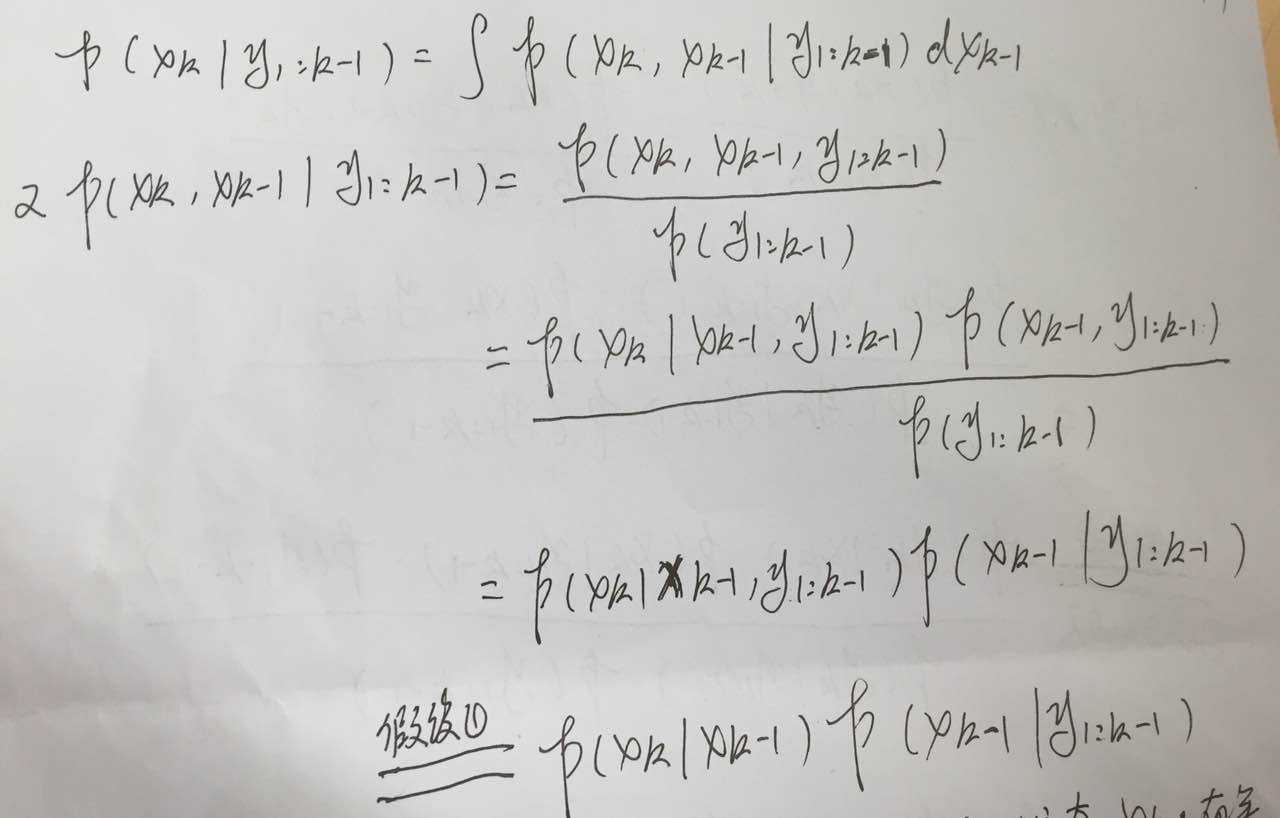 p(xk|y1:k-1) = ∫ p(xk, xk-1|y1:k-1) dxk-1
又 p(xk, xk-1|y1:k-1) = p(xk, xk-1, y1:k-1)
p(y1:k-1)
= p(xk|xk-1, y1:k-1) p(xk-1, y1:k-1)
p(y1:k-1)
= p(xk|xk-1, y1:k-1) p(xk-1|y1:k-1)
假设① p(xk|xk-1) p(xk-1|y1:k-1)